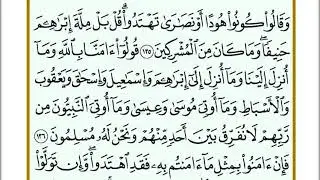 وَقَالُوا۟ كُونُوا۟ هُودًا أَوْ نَصَٰرَىٰ تَهْتَدُوا۟ ۗ قُلْ بَلْ مِلَّةَ إِبْرَٰهِۦمَ
حَنِيفًا ۖ وَمَا كَانَ مِنَ ٱلْمُشْرِكِينَ ١٣٥ قُولُوٓا۟ ءَامَنَّا بِٱللَّهِ وَمَآ
أُنزِلَ إِلَيْنَا وَمَآ أُنزِلَ إِلَىٰٓ إِبْرَٰهِۦمَ وَإِسْمَٰعِيلَ وَإِسْحَٰقَ وَيَعْقُوبَ
وَٱلْأَسْبَاطِ وَمَآ أُوتِىَ مُوسَىٰ وَعِيسَىٰ وَمَآ أُوتِىَ ٱلنَّبِيُّونَ مِن
رَّبِّهِمْ لَا نُفَرِّقُ بَيْنَ أَحَدٍ مِّنْهُمْ وَنَحْنُ لَهُۥ مُسْلِمُونَ ١٣٦
فَإِنْ ءَامَنُوا۟ بِمِثْلِ مَآ ءَامَنتُم بِهِۦ فَقَدِ ٱهْتَدَوا۟ ۖ وَّإِن تَوَلَّوْا۟